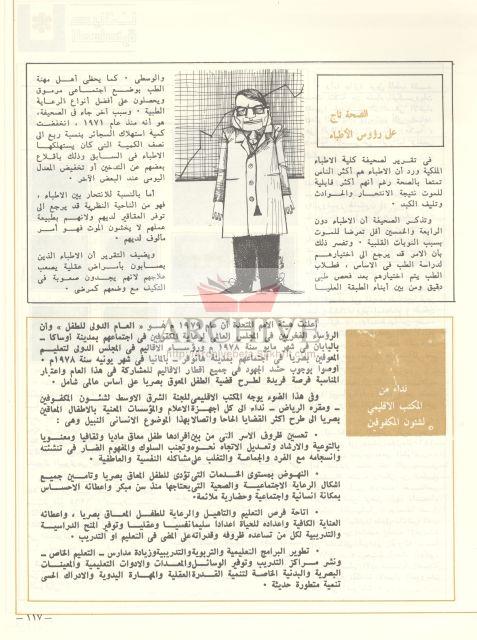 الصحة تاج
على رؤوس الأطباء
فى تقرير لصحيفة كلية الاطباء
الملكية ورد أن الاطباء هم أكثر الناس
تمتعا بالصحة رغم أنهم أكثر قابلية
للموت نتيجة الانتحار والحوادث
وتليف الكبد ٠
وتذكر الصحيفة أن الاطباء دون
الرابعة والخمسين أقل تعرضا للموت
بسبب النوبات القلبية ٠ وتفسر ذلك
بأن الامر قد يرجع الى اختيارهم
لدراسة الطب فى الاساس ، فطلاب
الطب يتم اختيارهم بعد فحص طبى
دقيق ومن بين أبناء الطبقة العليا
والوسطى ٠ كما يحظى أهل مهنة
الطب بوضع اجتماعى مرموق
ويحصلون على أفضل أنواع الرعاية
الطبية ٠ وسبب آخر جاء فى الصحيفة،
هو أنه منذ عام ١٩٧١ ، انخفضت
كمية استهلاك السجائر بنسبة ربع الى
نصف الكمية التى كان يستهلكها
الاطباء فى السابق وذلك باقلاع
بعضهم عن التدخين أو تخفيض المعدل
اليومى عند البعض الآخر ٠
أما بالنسبة للانتحار بين الاطباء ،
فهو من الناحية النظرية قد يرجع الى
توفر العقاقير لديهم ولانهم بطبيعة
عملهم لا يخشون الموت فهو أمر
مألوف لديهم ٠
ويضيف التقرير أن الاطباء الذين
يصابون بأمراض عقلية يصعب
علاجهم لانهم يجدون صعوبة فى
التكيف مع وضعهم كمرضى ٠
نداء من
المكتب الاقليمي
لشئون المكفوفين
أعلنت هيئة الامم المتحدة أن عام ١٩٧٩ م هو « العام الدولى للطفل » وأن
الرؤساء الفخريين فى المجلس العالمى لرعاية المكفوفين فى اجتماعهم بمدينة أوساكا –
باليابان فى شهر مايو سنة ١٩٧٨ م ورؤساء الاقاليم فى المجلس الدولى لتعليم
المعوقين بصريا فى اجتماعهم بمدينة هانوفر – بألمانيا فى شهر يونيه سنة ١٩٧٨م ٠
أوصوا بوجوب حشد الجهود فى جميع أقطار الاقاليم للمشاركة فى هذا العام واعتبار
المناسبة فرصة فريدة لطرح قضية الطفل المعوق بصريا على أساس عالمى شامل ٠
وفى هذا الضوء يوجه المكتب الاقليمى للجنة الشرق الاوسط لشئون المكفوفين
– ومقره الرياض – نداء الى كل أجهزة الاعلام والمؤسسات المعنية بالاطفال المعاقين
بصريا الى طرح أكثر القضايا الحاحا واتصالا بهذا الموضوع الانسانى النبيل وهى :
٠ تحسين ظروف الاسر التى من بين أفرادها طفل معاق ماديا وثقافيا ومعنويا
بالتوعية والارشاد وتعديل الاتجاه نحوه وتجنب السلوك والمفهوم الضار فى تنشئته
وانسجامه مع الفرد والجماعة والتغلب على مشاكله النفسية والعاطفية ٠
٠ النهوض بمستوى الخدمات التى تؤدى للطفل المعاق بصريا وتأمين جميع
أشكال الرعاية الاجتماعية والصحية التى يحتاجها منذ سن مبكر واعطائه الاحساس
بمكانة انسانية واجتماعية وحضارية ملائمة٠
٠ اتاحة فرص التعليم والتأهيل والرعاية للطفل المعاق بصريا ، واعطائه
العناية الكافية واعداده للحياة اعدادا سليما نفسيا وعقليا وتوفير المنح الدراسية
والتدريبية لكل من تساعده ظروفه وقدراته على المضى فى التعليم أو التدريب ٠
٠ تطوير البرامج التعليمية والتربوية والتدريبية وزيادة مدارس – التعليم الخاص –
ونشر مراكز التدريب وتوفير الوسائل والمعدات والادوات التعليمية والمعينات
البصرية والبدنية الخاصة لتنمية القدرة العقلية والمهارة اليدوية والادراك الحسى
تنمية متطورة حديثة ٠
– ١١٧ –